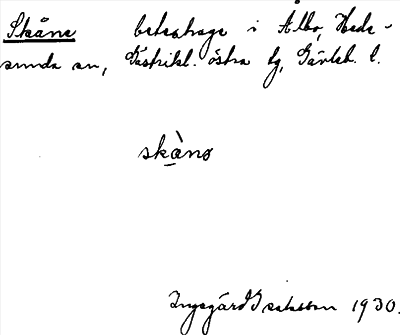 Skåne beteshage i Ålbo, Hede-
sunda sn, Gästrikl. östra tg, Gävleb. l.
skànɵ
Ingegärd Isaksson 1930.